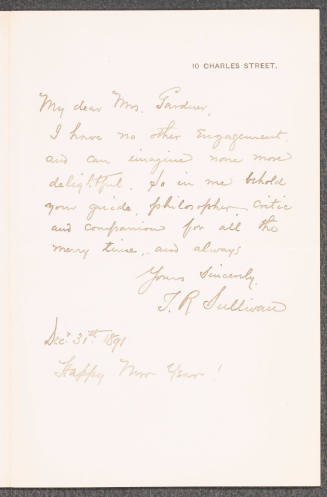 10 CHARLES STREET.
My dear Mrs. Gardner,
I have no other Engagement,
and can imagine none more
delightful. So in me behold
your guide, philosopher, critic
and companion for all the
merry time, and always
Yours Sincerely,
T. R. Sullivan
Dec. 31st. 1891
Happy New Year!